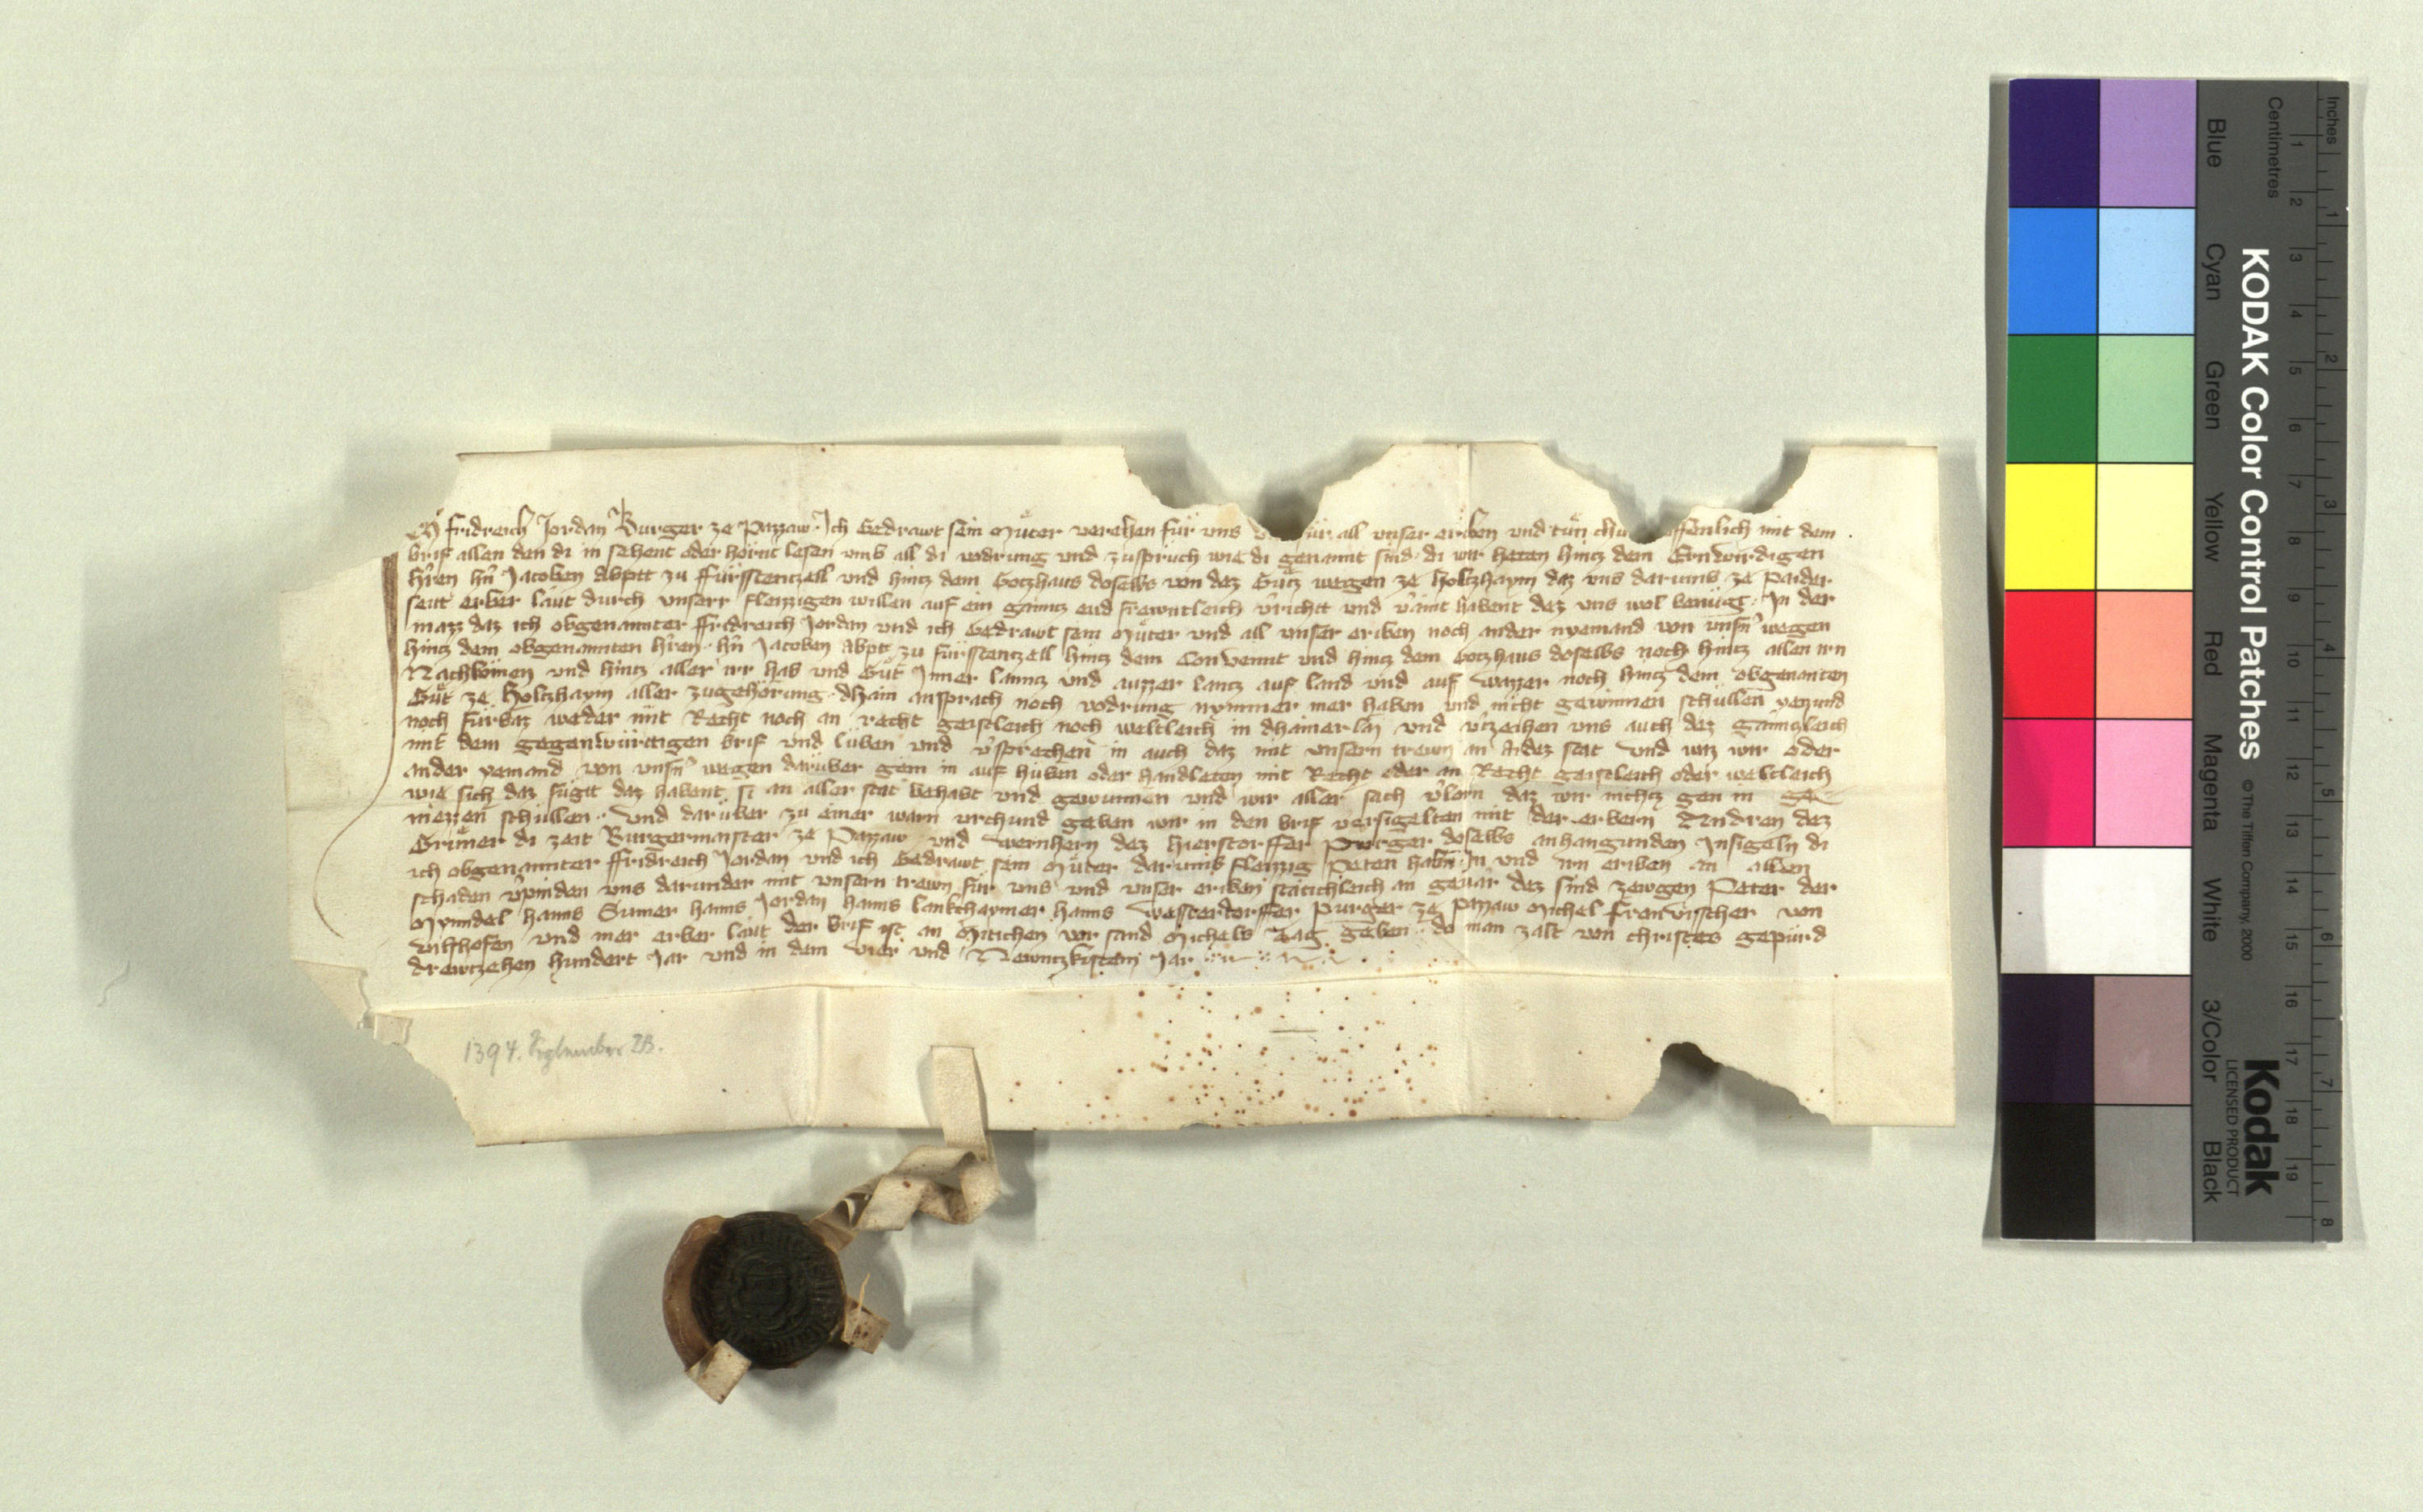 Ich fridreich Jordan Burger ze Pazzaw Ich Gedrawt sein Muͤter veriehen für uns für all unser eriben und tuͤn chu offenlich mit dem
brif allen den di in sehent oder hoͤrnt lesen umb all di vodrung und zuspruch wie di genannt sind di wir heten hincz dem Erwirdigen
hrēn hn̄ Jacoben abptt zu Fürsstenczell und hincz dem Goczhaus doselbs von dez Guͤtz wegen ze Holtzhaym daz uns darumb ze paider
seitt erber läut durch unserr fleizzigen willen auf ein gänntz end frewntleich v'richtt und v'aint habent daz uns wol benügt In der
mazz daz ich obgenannter Ffridreich Jordan und ich Gedrawt sein Muͤter und all unser eriben noch ander nyemand von unsn̄ wegen
hincz dem obgenannten hrēn hn̄ Jacoben Abptt zu fürsstenczell hincz dem Convennt und hincz dem Goczhaus doselbs noch hincz allen irn
Nachkömen und hintz aller irr hab und Guͤt Inner lanntz und auzzer lantz auf land und auf wazzer noch hincz dem obgenanten
Guͤt ze Holtzhaym aller zugehörung dhain ansprach noch vodrung nymmer mer haben und nicht gewinnen schüllen yezund
noch fürbaz weder mit Recht noch an recht geistleich noch weltleich in dhainerlay und v'tzeihen uns auch dez gänntzleich
mit dem gegenwürttigen brif und lüben und v'sprechen in auch daz mit unsern trewn an aides stat Und waz wir oder
ander yemand von unsn̄ wegen darüber gein in auf hüben oder handleten mit Recht oder an Recht geistleich oder weltleich
wie sich daz fügtt daz habent si an aller stat behabt und gewunnen und wir aller sach v'lorn daz wir nichtz gen in ge
niezzen schüllen Und darüber zu einer warn urchund geben wir in den brif versigelten mit der erbern Andren dez
Grümer di zeit Burgermaister ze Pazzaw und Wernhern dez Hierstorffer Purger doselbs anhangunden Insigeln di
ich obgenannter Ffridreich Jordan und ich Gedrawt sein Muͤter darumb fleizzig Peten habn In und irn eriben an allen
schaden v'pinden uns darunder mit unsern trewn für uns und unser eriben stätichleich an gevär dez sind zewgen Peter der
Mynndel hanns Sumer hanns Jordan hanns lankchaymer hanns Westerdorffer Purger ze Pazzaw Michel fronvisscher von
vilshofen und mer erber läut der brif ist an Mitichen vor sand Michels Tag geben do man zalt von christes gepürd
drewtzehen hundert Jar und in dem Vier und Newntzkistem Jar
1394. September 23.
KODAK Color Control Patches
© The Tiffen Company, 2000
Kodak
LICENSED PRODUCT
Inches
Centimetres
1 2 3 4 5 6 7 8
1 2 3 4 5 6 7 8 9 10 11 12 13 14 15 16 17 18 19
Blue Cyan Green Yellow Red Magenta White 3/Color Black